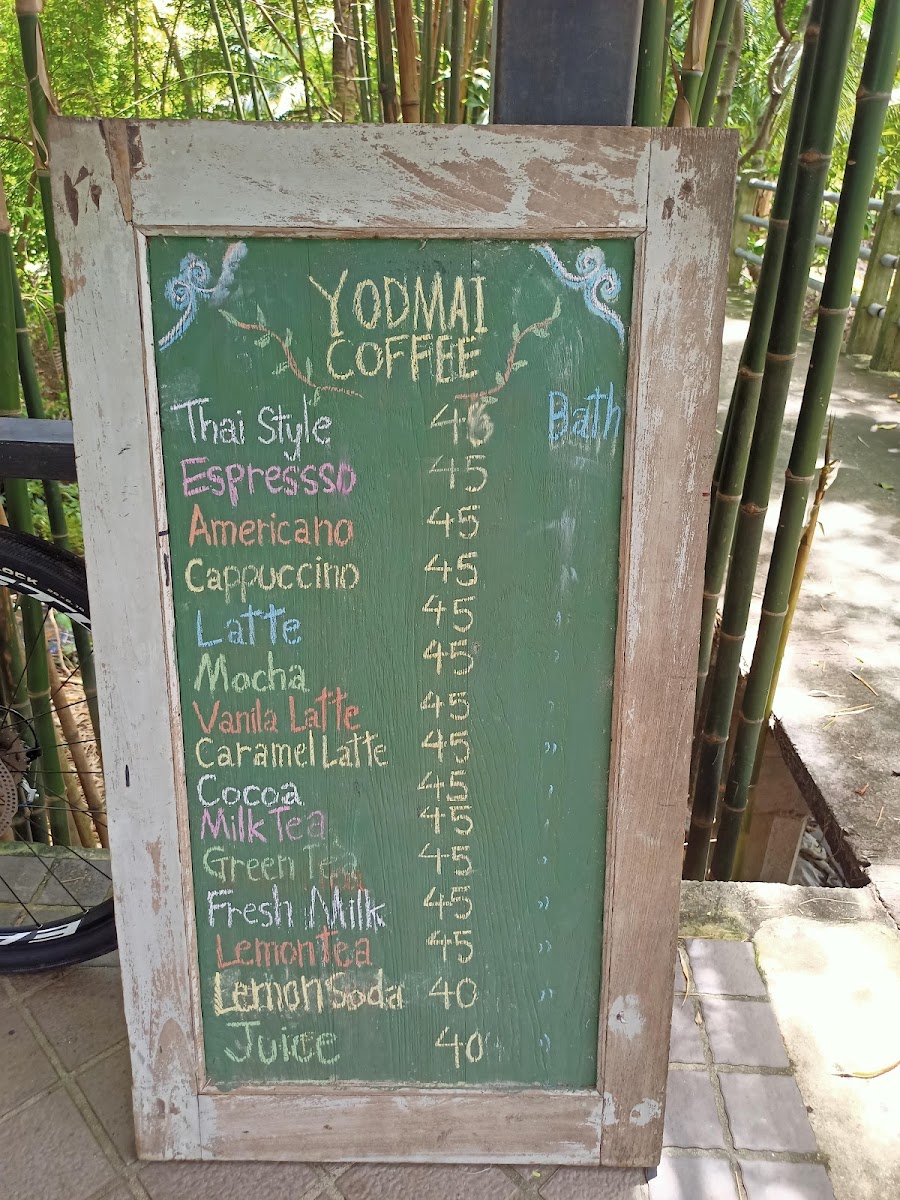 YODMAI
COFFEE
Thai Style 45 Bath
Espressso 45
Americano 45
Cappuccino 45
Latte 45
Mocha 45
Vanila Latte 45
Caramel Latte 45 "
Cocoa 45
Milk Tea 45
Green Tea 45
Fresh Milk 45 "
Lemon Tea 45 "
Lemon Soda 40 "
Juice 40 "